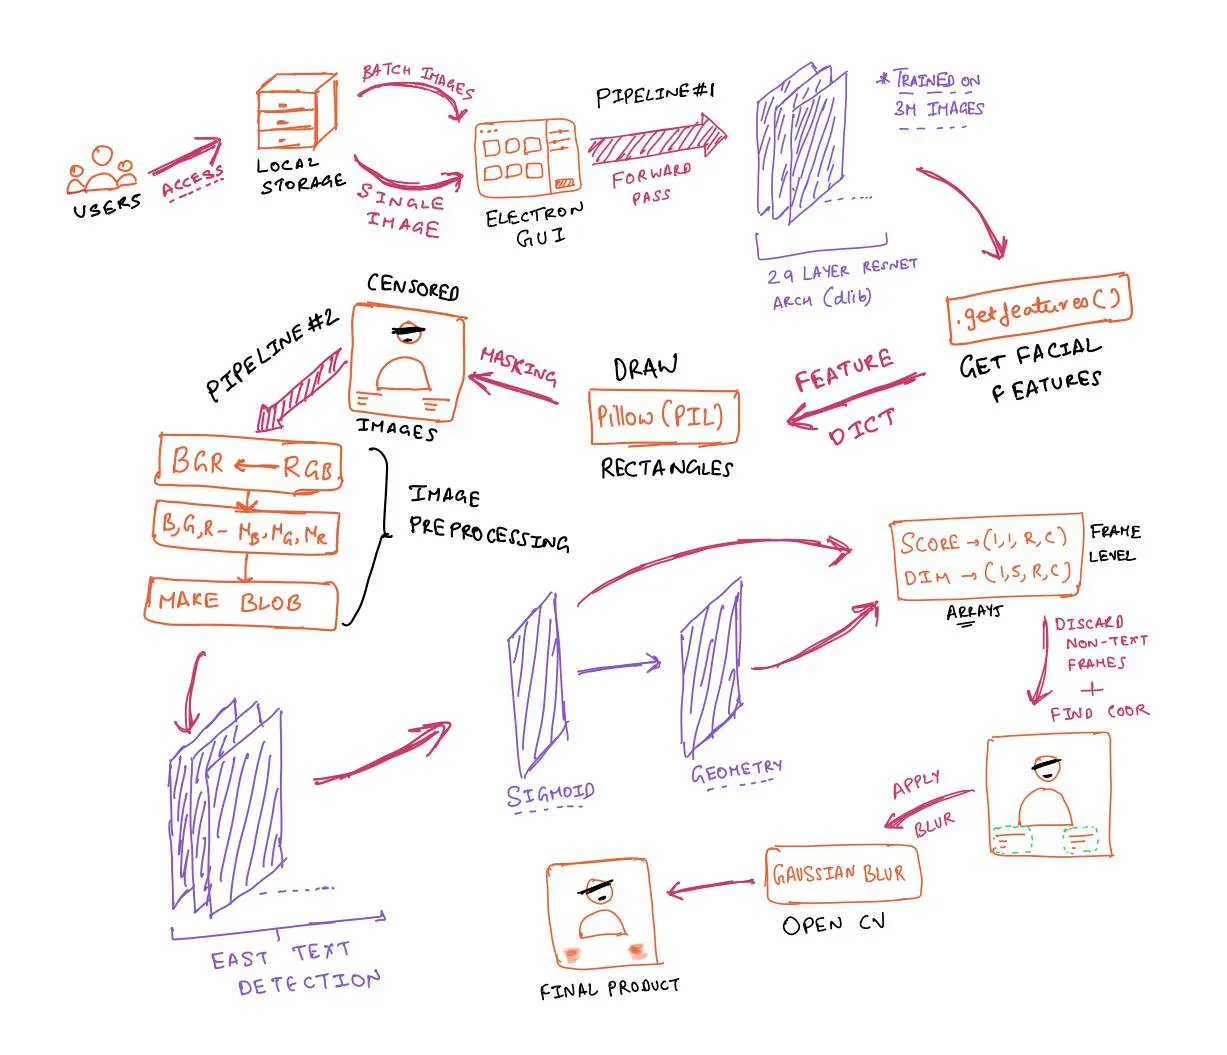 USERS
ACCESS
LOCAL
STORAGE
BATCH IMAGES
SINGLE
IMAGE
ELECTRON
GUI
PIPELINE #1
FORWARD
PASS
* TRAINED ON
3M IMAGES
29 LAYER RESNET
ARCH (dlib)
.getfeatures()
GET FACIAL
FEATURES
FEATURE
DICT
DRAW
Pillow (PIL)
RECTANGLES
MASKING
CENSORED
IMAGES
PIPELINE #2
BGR ← RGB
B,G,R - MB, MG, MR
MAKE BLOB
IMAGE
PREPROCESSING
EAST TEXT
DETECTION
SIGMOID
GEOMETRY
SCORE → (1,1, R, C)
DIM → (1,5, R, C)
FRAME
LEVEL
ARRAYS
DISCARD
NON-TEXT
FRAMES
+
FIND COOR
APPLY
BLUR
GAUSSIAN BLUR
OPEN CV
FINAL PRODUCT